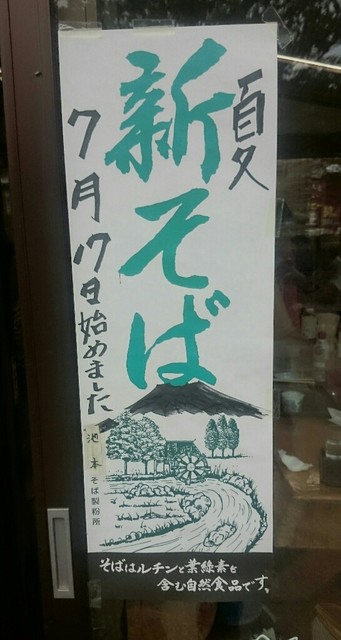 夏
新そば
7月17日始めました
池本そば製粉所
そばはルチンと葉緑素を
含む自然食品です、